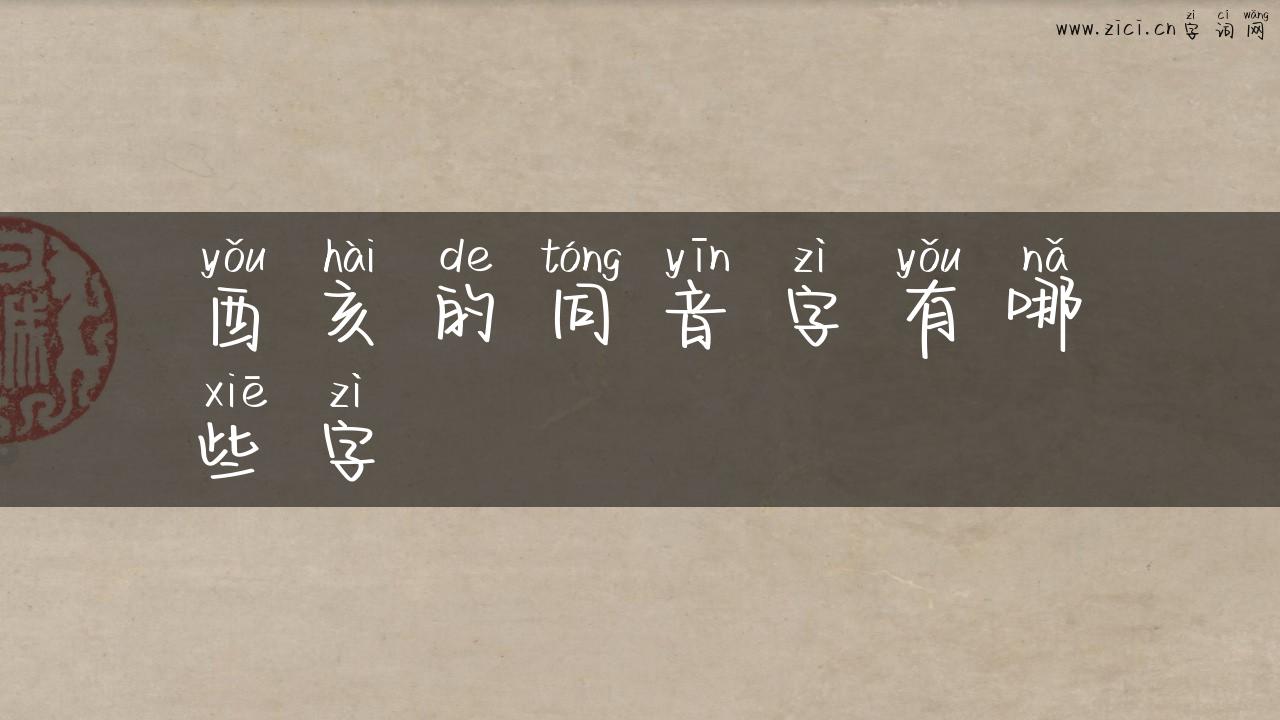 zì cí wǎng
www.zici.cn 字词网
yǒu hài de tóng yīn zì yǒu nǎ
酉亥的同音字有哪
xiē zì
些字